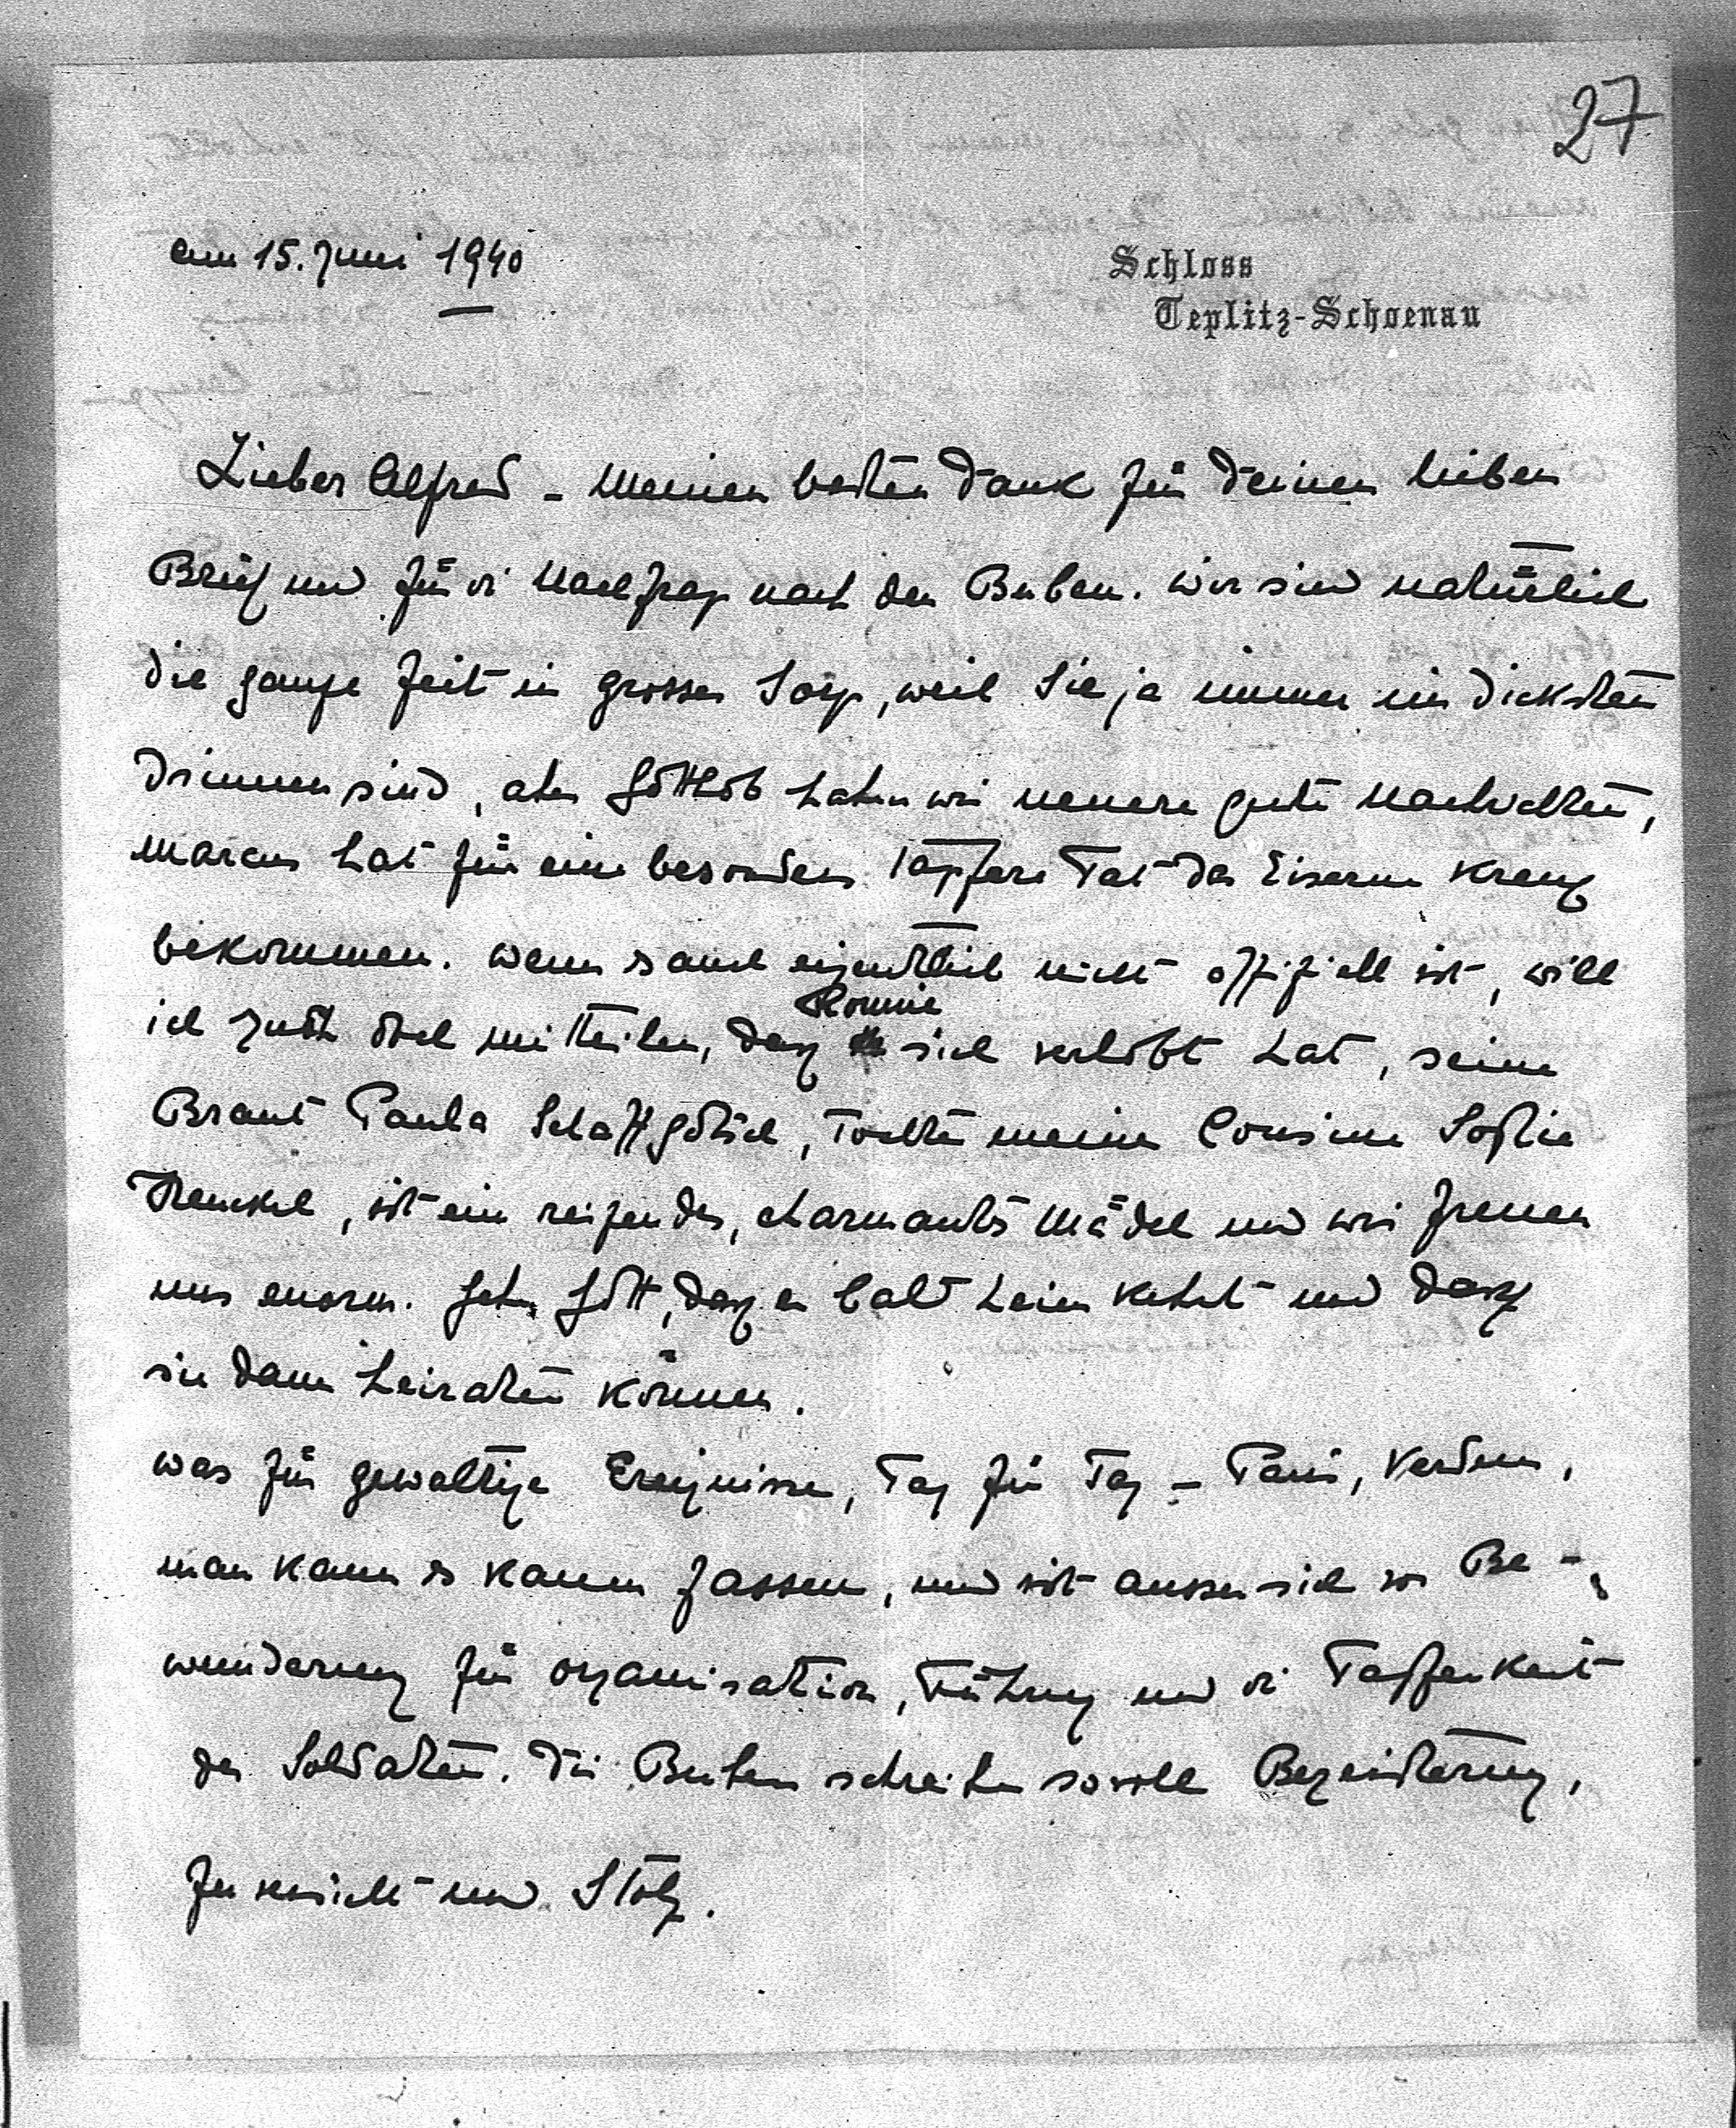 27
am 15. Juni 1940
Schloss
Teplitz-Schoenau
Lieber Alfred - Meinen besten Dank für Deinen lieben
Brief und für die Nachfrage nach den Buben. Wir sind natürlich
die ganze Zeit in grosser Sorge, weil Sie ja immer im dicksten
Drinnen sind, aber Gottlob haben wir neuere gute Nachrichten,
Marcus hat für eine besonders tapfere Tat das Eiserne Kreuz
bekommen. Wenn es auch eigentlich nicht offiziell ist, will
ich Euch doch mitteilen, dass Ronnie sich verlobt hat, seine
Braut Paula Schaffgotsch, Tochter meiner Cousine Sofie
Henckel, ist ein reizendes, charmantes Mädel und wir freuen
uns enorm. Gebe Gott, dass er bald heim kehrt und dass
sie dann heiraten können.
Was für gewaltige Ereignisse, Tag für Tag - Paris, Verdun,
man kann es kaum fassen, und ist ausser sich vor Be-
wunderung für Organisation, Führung und die Tapferkeit
der Soldaten. Die Buben schreiben so voll Begeisterung,
Zuversicht und Stolz.